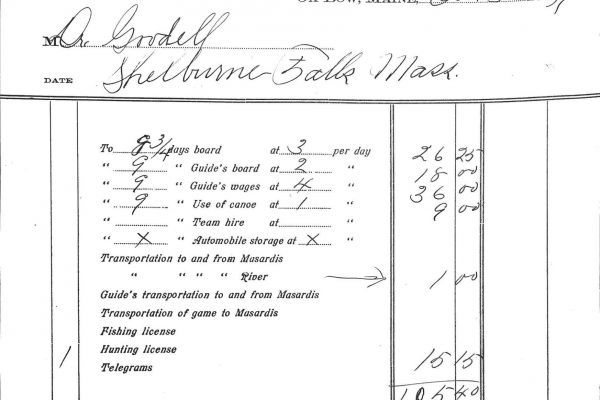 OX BOW, MAINE,
M Dr. Goodell
DATE Shelburne Falls Mass.
To 8 3/4 days board at 3 per day 26 25
" 9 " Guide's board at 2 " 18 00
" 9 " Guide's wages at 4 " 36 00
" 9 " Use of canoe at 1 " 9 00
" " Team hire at "
" X " Automobile storage at X "
Transportation to and from Masardis
" " " " River → 1 00
Guide's transportation to and from Masardis
Transportation of game to Masardis
Fishing license
1 Hunting license 15 15
Telegrams
105 40